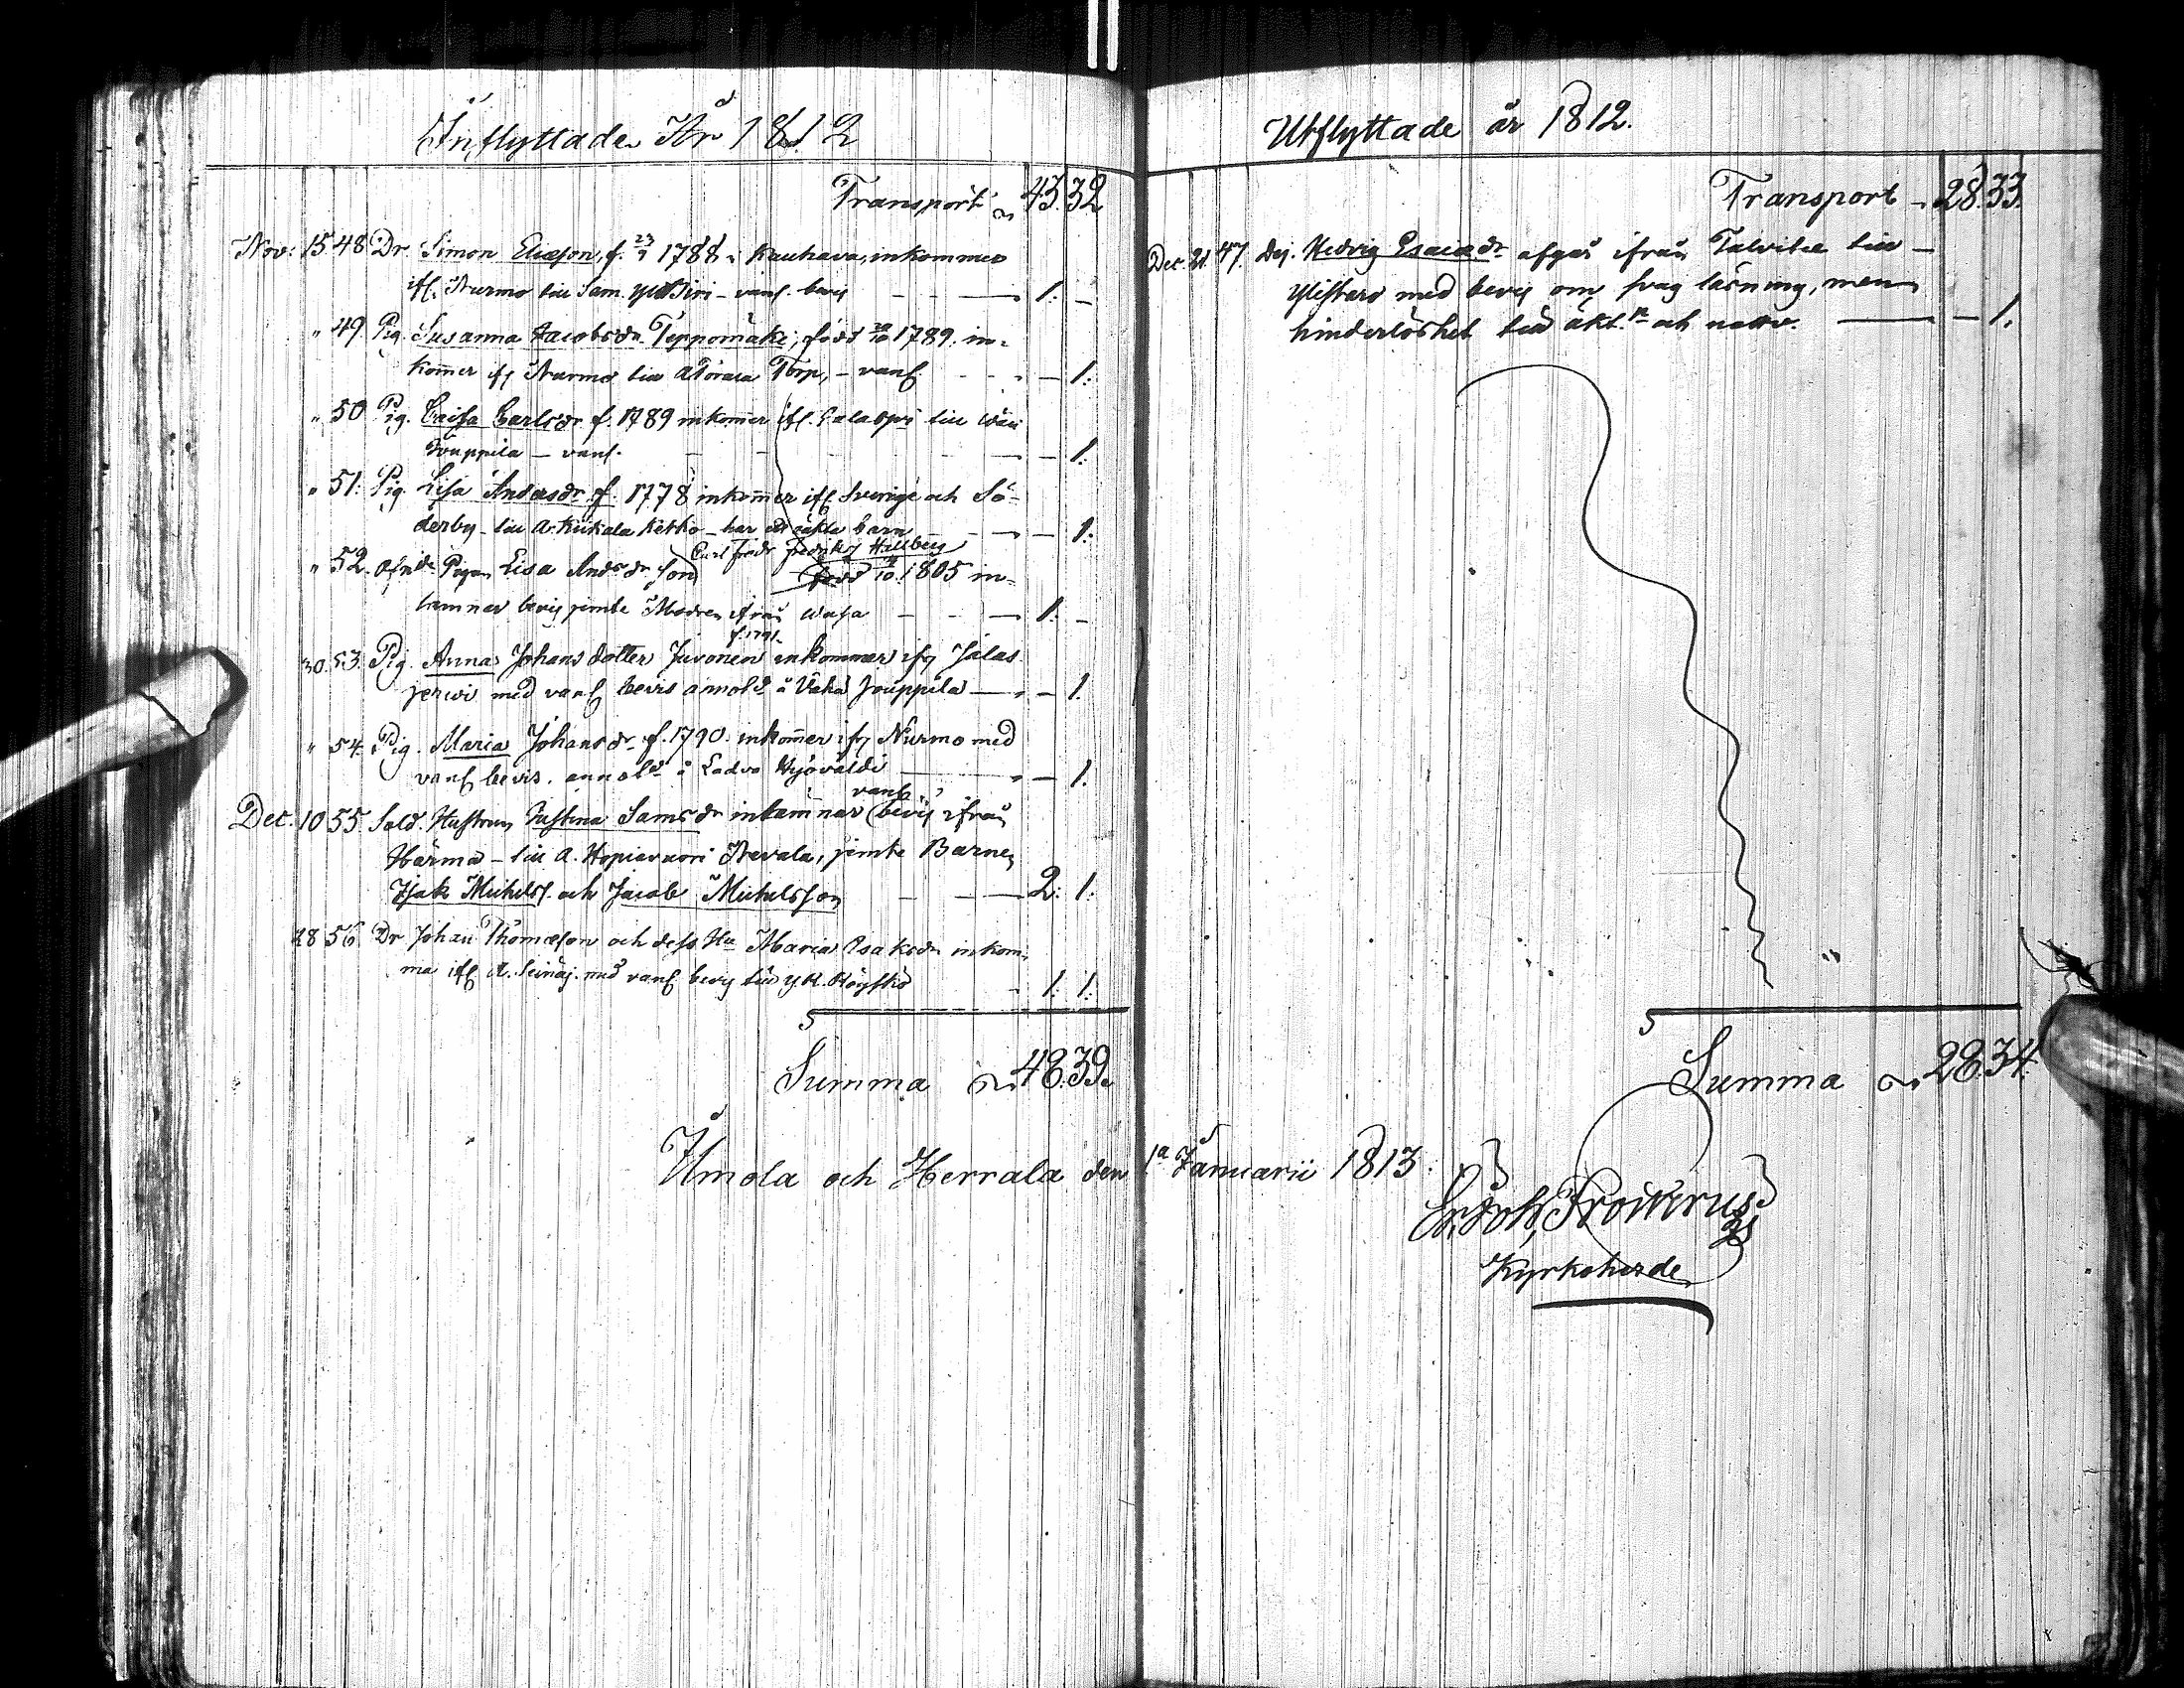 Inflyttade År 1812
Transport 43. 32
Nov. 15 48 Dr. Simon Eliæson, f. 23/9 1788 i Kauhava, inkommer
ifr. Nurmo till Sam. - vanl. bevis — 1. —
" 49. Pig. Susanna Jacobsdr Teppomäki, född 1789. in-
kommer ifr Nurmo till Törnävä Torp, - vanl. — 1.
" 50 Pig. Caisa Carlsdr f. 1789 inkommer ifr. till
Jouppila — vanl. — 1.
" 51. Pig. Lisa Andersdr f. 1778 inkommer ifr. Sverige och Sö-
derby - till A. Kiikala Ketko - har äkta barn — 1.
Carl Fredr Fredriks Hallberg
" 52. Ofvande Pigan Lisa Andrsdr son född 1805 in-
lämnar bevis jemte Modren ifrån Wasa — 1. —
f. 1791.
30. 53. Pig. Anna Johansdotter Juvonen inkommer ifr Jalas-
jerwi med vanl bevis anmäld å Vähä Jouppila — — 1.
" 54. Pig. Maria Johansdr f. 1790. inkommer ifr Nurmo med
vanl bevis. anmäld å Ladva — — 1.
vanl.
Dec. 10 55 Sold. Hustrun Justina Samsdr inlämnar bevis ifrån
Härmä - till A. Hopiavuori Nevala, jemte Barnen
Isak Michelss. och Jacob Michelsson — 2. 1.
28 56. Dr Johan Thomæson och dess Hu Maria Isaksdr inkom-
ma ifr A. Seinäj. med vanl bevis till — 1. 1.
Summa 48. 39.
Utflyttade år 1812.
Transport 28. 33.
Dec. 21. 47. Dej. Hedvig Esaiædr afgår ifrån Talvitie till
Ylistaro med bevis om svag läsning, men
hinderlöshet till äkt. och nattv. — — 1.
Summa 28. 34.
Ilmola och Herrala den 1a Januarii 1813.
Kyrkoherde